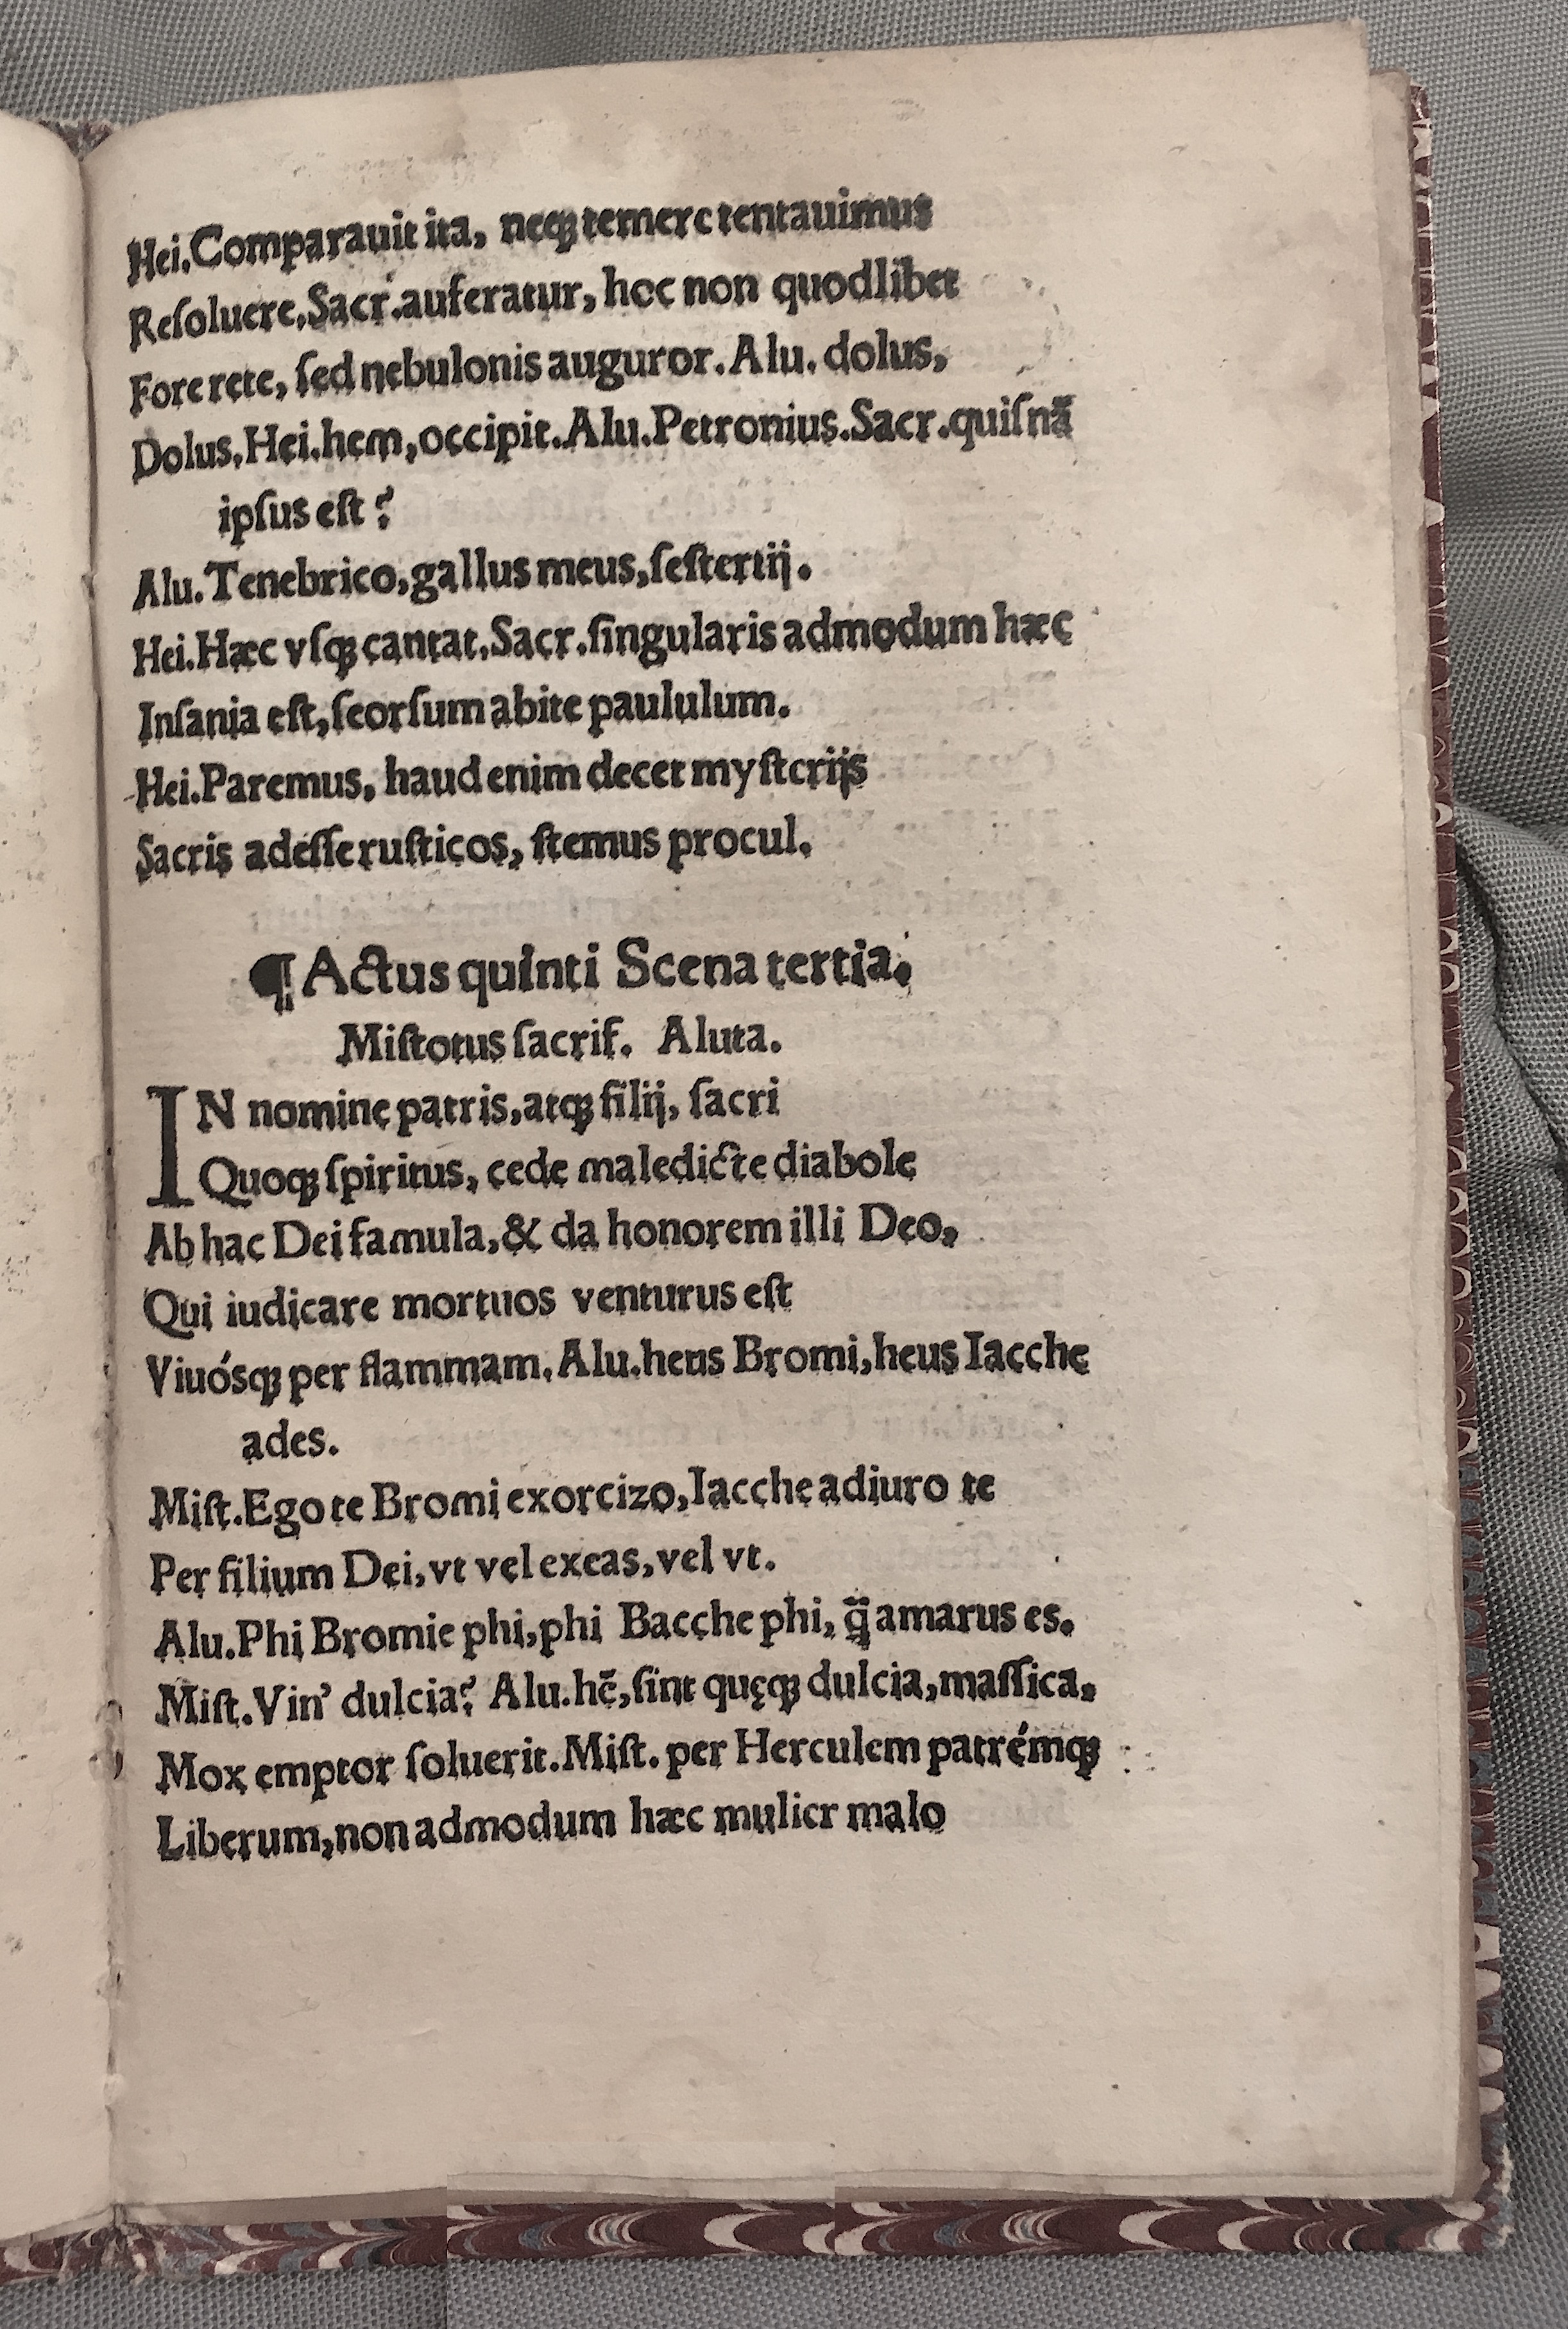 Hei.Comparauit ita, neqꝫ temere tentauimus
Reſoluere.Sacr.auferatur, hoc non quodlibet
Fore rete, ſed nebulonis auguror. Alu. dolus,
Dolus.Hei.hem,occipit.Alu.Petronius.Sacr.quiſnā
ipſus eſt?
Alu.Tenebrico,gallus meus,ſeſtertij.
Hei.Hæc vſqꝫ cantat.Sacr.ſingularis admodum hæc
Inſania eſt,ſeorſum abite paululum.
Hei.Paremus, haud enim decet myſterijs
Sacris adeſſe ruſticos, ſtemus procul.
¶ Actus quinti Scena tertia.
Miſtotus ſacrif. Aluta.
IN nomine patris,atqꝫ filij, ſacri
Quoqꝫ ſpiritus, cede maledicte diabole
Ab hac Dei famula,& da honorem illi Deo,
Qui iudicare mortuos venturus eſt
Viuósqꝫ per flammam.Alu.heus Bromi,heus Iacche
ades.
Miſt.Ego te Bromi exorcizo,Iacche adiuro te
Per filium Dei,vt vel exeas,vel vt.
Alu.Phi Bromie phi,phi Bacche phi, q̃̈ amarus es.
Miſt.Vin' dulcia? Alu.hē,ſint quęqꝫ dulcia,maſſica,
Mox emptor ſoluerit.Miſt. per Herculem patrémqꝫ
Liberum,non admodum hæc mulier malo